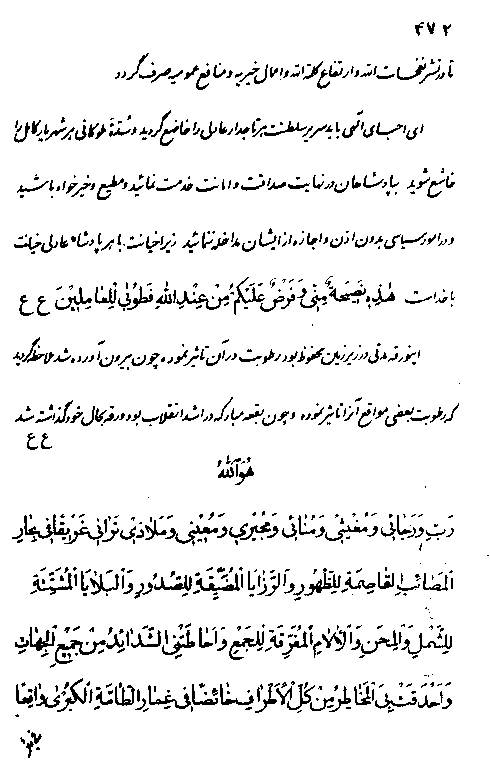 ۴۷۲
تا در نشر نفحات اللّه و ارتفاع کلمة اللّه و اعمال خیریه و منافع عمومیه صرف گردد
ای احبای الهی باید سریر سلطنت هر تاجدار عادلی را خاضع گردید و سدّهٔ ملوکانی هر شهریار کامل را
خاشع شوید بپادشاهان در نهایت صداقت و امانت خدمت نمائید و مطیع و خیرخواه باشید
و در امور سیاسی بدون اذن و اجازه از ایشان مداخله ننمائید زیرا خیانت با هر پادشاه عادلی خیانت
با خداست هٰذِهِ نَصیحَةٌ مِنّی وَ فَرْضٌ عَلَیْکُمْ مِنْ عِنْدِ اللّهِ فَطُوبی لِلْعامِلینَ ع ع
اینورقه مدتی در زیر زمین محفوظ بود رطوبت در آن تأثیر نموده چون بیرون آورده شد ملاحظه گردید
که رطوبت بعضی مواقع آنرا تأثیر نموده و چون بقعه مبارکه در اشد انقلاب بود ورقه بحال خود گذاشته شد
ع ع
هُوَ اللّهُ
رَبِّ وَ رَجائی وَ مُغیثی وَ مُنائی وَ مُجیری وَ مُعینی وَ مَلاذی تَرانی غَریقاً فی بِحارِ
الْمَصائِبِ القاصِمَةِ لِلظُّهُورِ وَ الرَّزایا الْمُضَیِّقَةِ لِلصُّدُورِ وَ الْبَلایا الْمُشَتِّتَةِ
لِلشَّمْلِ وَ الْمِحَنِ وَ الْآلامِ الْمُفَرِّقَةِ لِلْجَمْعِ وَ اَحاطَتْنِی الشَّدائِدُ مِنْ جَمیعِ الْجِهاتِ
وَ اَحْدَقَتْ بِیَ الْمَخاطِرُ مِنْ کُلِّ الْاَطْرافِ خائِضاً فی غِمارِ الطّامَّةِ الْکُبْری واقِعاً